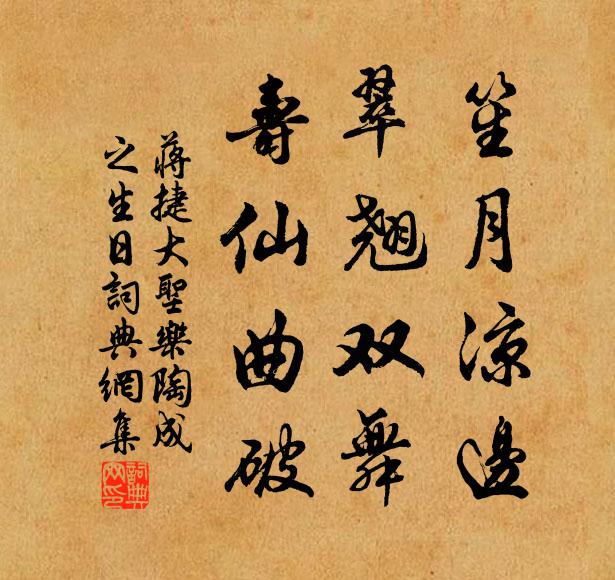 笙月凉邊
翠翹双舞
壽仙曲破
蔣捷大聖樂陶成
之生日詞典網集
詞典网印